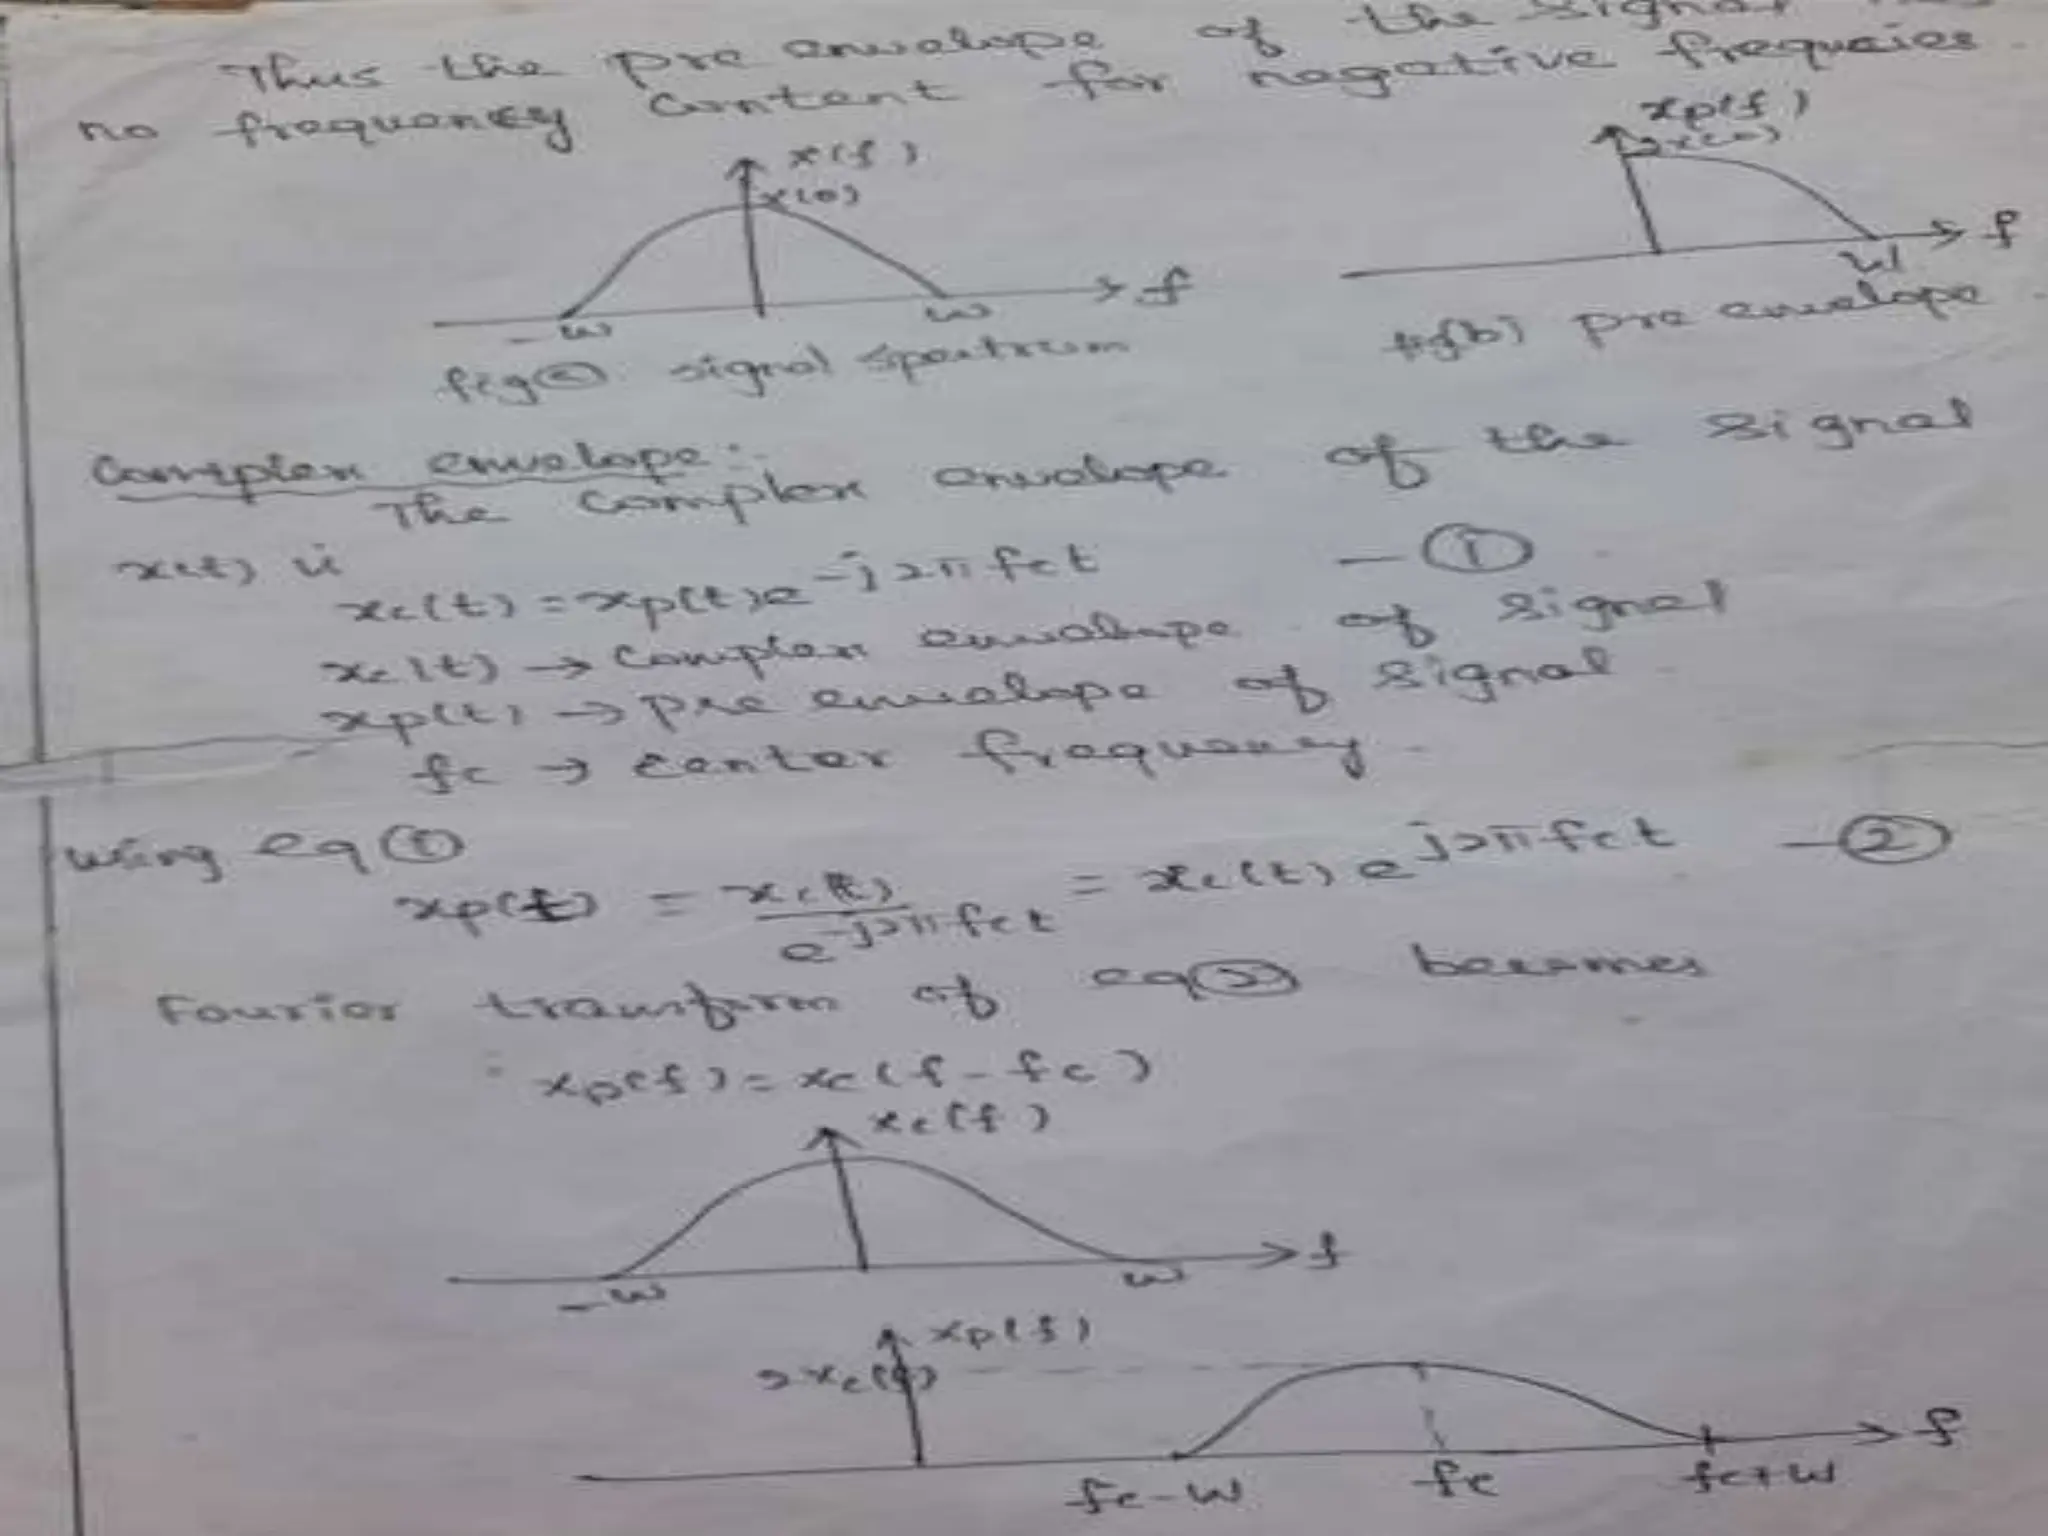 Thus the pre envelope of the signal
no frequency content for nagative frequcies.
x(f)
x(0)
-w w f
fig(a) signal spectrum
xp(f)
2x(0)
w f
fig(b) pre envelope.
Complex envelope:-
The complex envelope of the signal
x(t) is
xc(t) = xp(t)e^-j2πfct — ①
xc(t) → complex envelope of signal
xp(t) → pre envelope of signal.
fc → center frequency.
using eq ①
xp(t) = xc(t) / e^-j2πfct = xc(t) e^j2πfct — ②
Fourier transform of eq② becomes
xp(f) = xc(f-fc)
xc(f)
-w w f
xp(f)
fc-w fc fc+w f